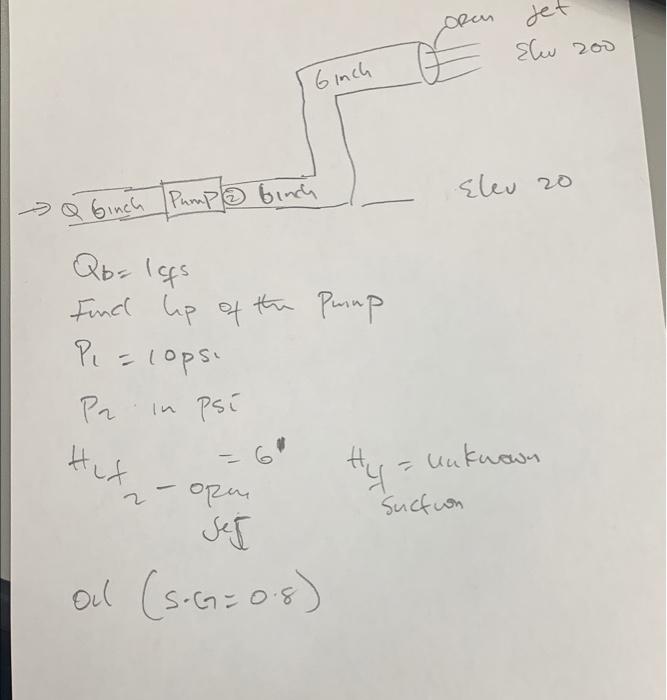 open Jet
Elev 200
6 inch
→ Q 6inch Pump ② 6inch
Elev 20
Qb= 1cfs
Find hp of the Pump
P1 = 10psi
P2 in psi
HLf 2 - open Jet = 6'
Hlf = unknown
Suction
Oil (S.G = 0.8)